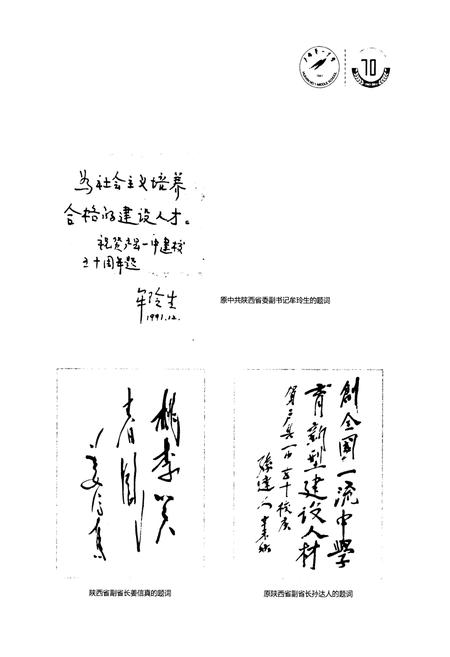 70
为社会主义培养
合格的建设人才。
祝贺户县一中建校
五十周年题
牟玲生
1991.12.
原中共陕西省委副书记牟玲生的题词
桃李笑
春风
姜信真
陕西省副省长姜信真的题词
創全國一流中學
育新型建设人材
贺户县一中五十校庆
孫達人
原陕西省副省长孙达人的题词